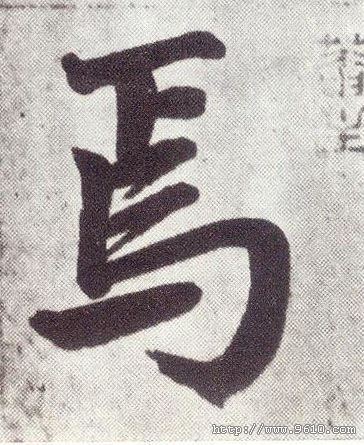 焉
http://www.9610.com